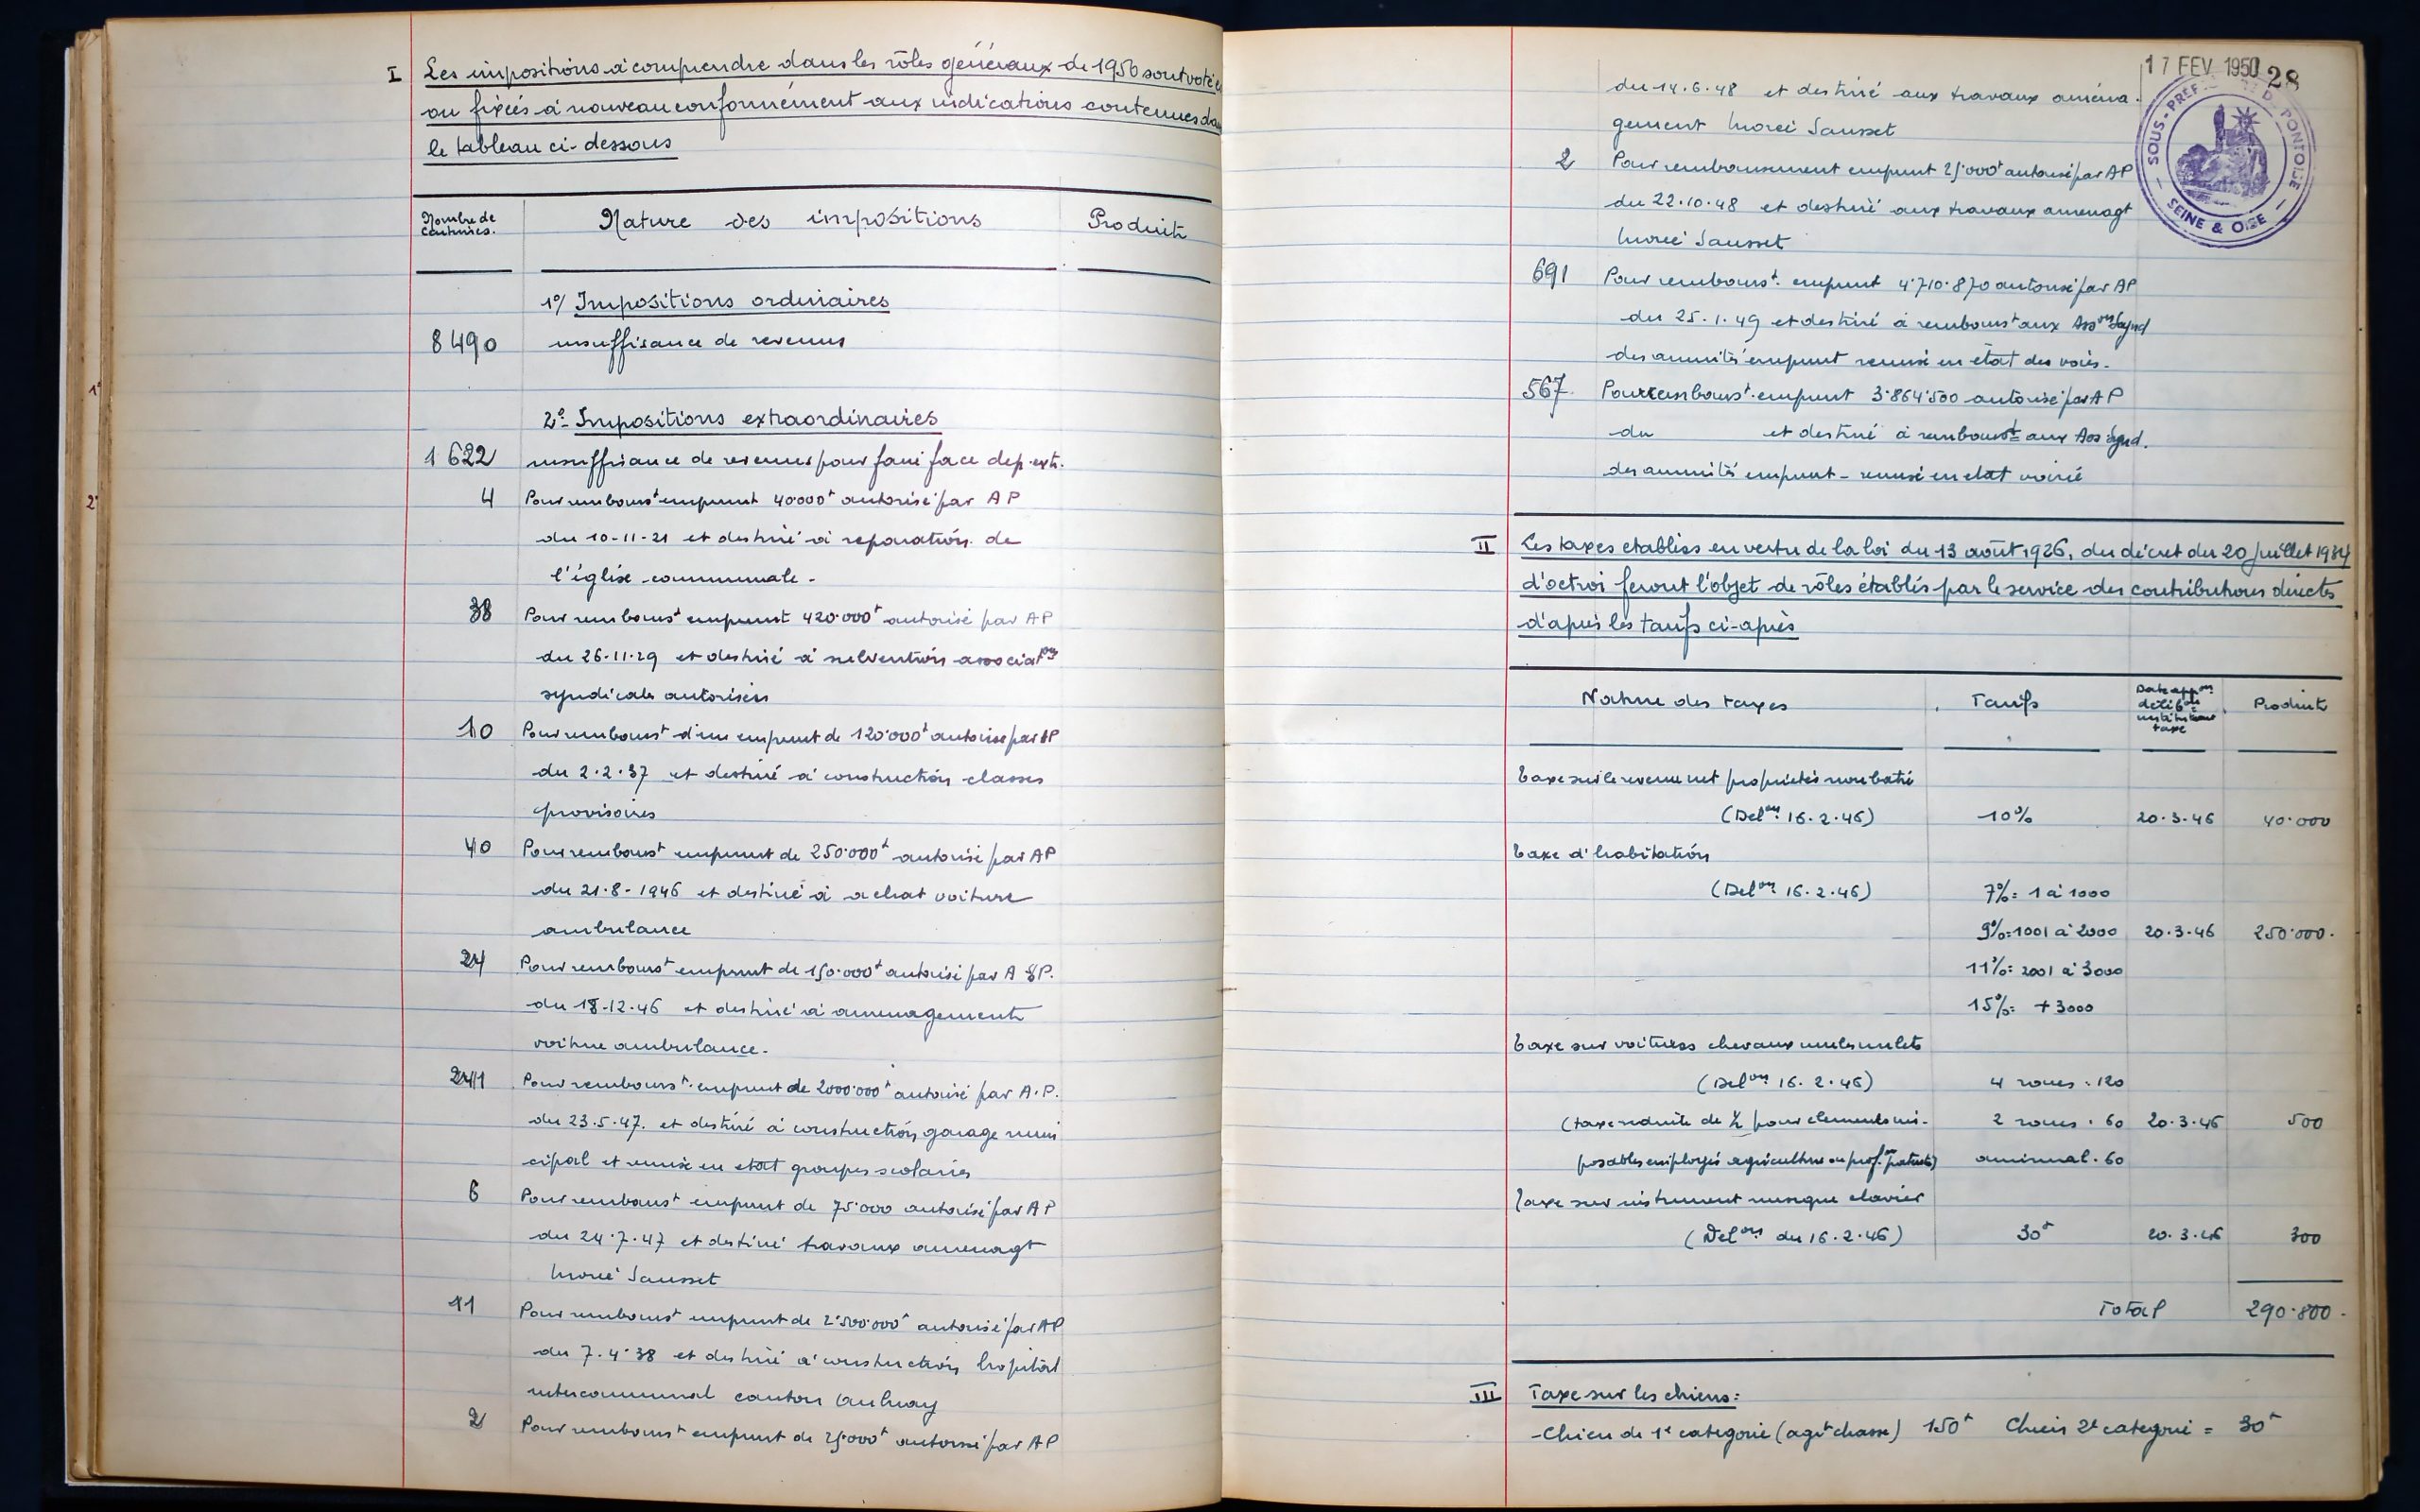 I Les impositions à comprendre dans les rôles généraux de 1950 sont votées
ou fixées à nouveau conformément aux indications contenues dans
le tableau ci-dessous
Nombre de centimes. Nature des impositions Produit
1°/ Impositions ordinaires
8490 insuffisance de revenus
2°- Impositions extraordinaires
1622 insuffisance de revenus pour faire face dep. extr.
4 Pour rembourst emprunt 40.000f autorisé par AP
du 10-11-21 et destiné à reparation de
l'église communale.
38 Pour rembourst emprunt 420.000f autorisé par AP
du 26.11.29 et destiné à subvention associatons
syndicales autorisées
10 Pour rembourst d'un emprunt de 120.000f autorisé par AP
du 2.2.37 et destiné à construction classes
provisoires
40 Pour rembourst emprunt de 250.000f autorisé par AP
du 21.8-1946 et destiné à achat voiture
ambulance
24 Pour rembourst emprunt de 150.000f autorisé par A P.
du 18.12.46 et destiné à amenagement
voiture ambulance.
241 Pour rembourst. emprunt de 2000.000f autorisé par A.P.
du 23.5.47. et destiné à construction garage muni
cipal et remise en etat groupes scolaires
6 Pour rembourst emprunt de 75.000 autorisé par AP
du 24.7.47 et destiné travaux amenagt
Sausset
11 Pour rembourst emprunt de 2.500.000f autorisé par AP
du 7.4.38 et destiné à construction hopital
intercommunal canton Aulnay
2 Pour rembourst emprunt de 25.000f autorisé par AP
17 FEV 1950 28
SOUS-PREFECTURE DE PONTOISE
SEINE & OISE
du 14.6.48 et destiné aux travaux aména.
gement Sausset
2 Pour remboursement emprunt 25.000f autorisé par AP
du 22.10.48 et destiné aux travaux amenagt
Sausset
691 Pour rembourst. emprunt 4.710.870 autorisé par AP
du 25.1.49 et destiné à rembourst aux Assons Synd
des annuités emprunt remise en état des voies.
567 Pour rembourst. emprunt 3.864.500 autorisé par AP
du et destiné à rembourst aux Ass Synd.
des annuités emprunt - remise en etat voirie
II Les taxes etablies en vertu de la loi du 13 août 1926, du décret du 20 juillet 1934
d'octroi feront l'objet de rôles établis par le service des contributions directes
d'après les tarifs ci-après
Nature des taxes Tarifs Date appon délibon instituant taxe Produit
Taxe sur le revenu net propriétés non bati
(Delon 16.2.46) 10% 20.3.46 40.000
Taxe d'habitation
(Delon 16.2.46) 7%= 1 à 1000
9%=1001 à 2000 20.3.46 250.000.
11%= 2001 à 3000
15%= +3000
Taxe sur voitures chevaux mules mulets
(Delon 16.2.46) 4 roues.120
(taxe reduite de ½ pour elements im-
2 roues.60 20.3.46 500
posables employés agriculture ou profon patente) animal.60
Taxe sur instrument musique clavier
(Delon du 16.2.46) 30f 20.3.46 300
Total 290.800.
III Taxe sur les chiens:
-Chien de 1e categorie (agrt chasse) 150f Chien 2e categorie = 30f